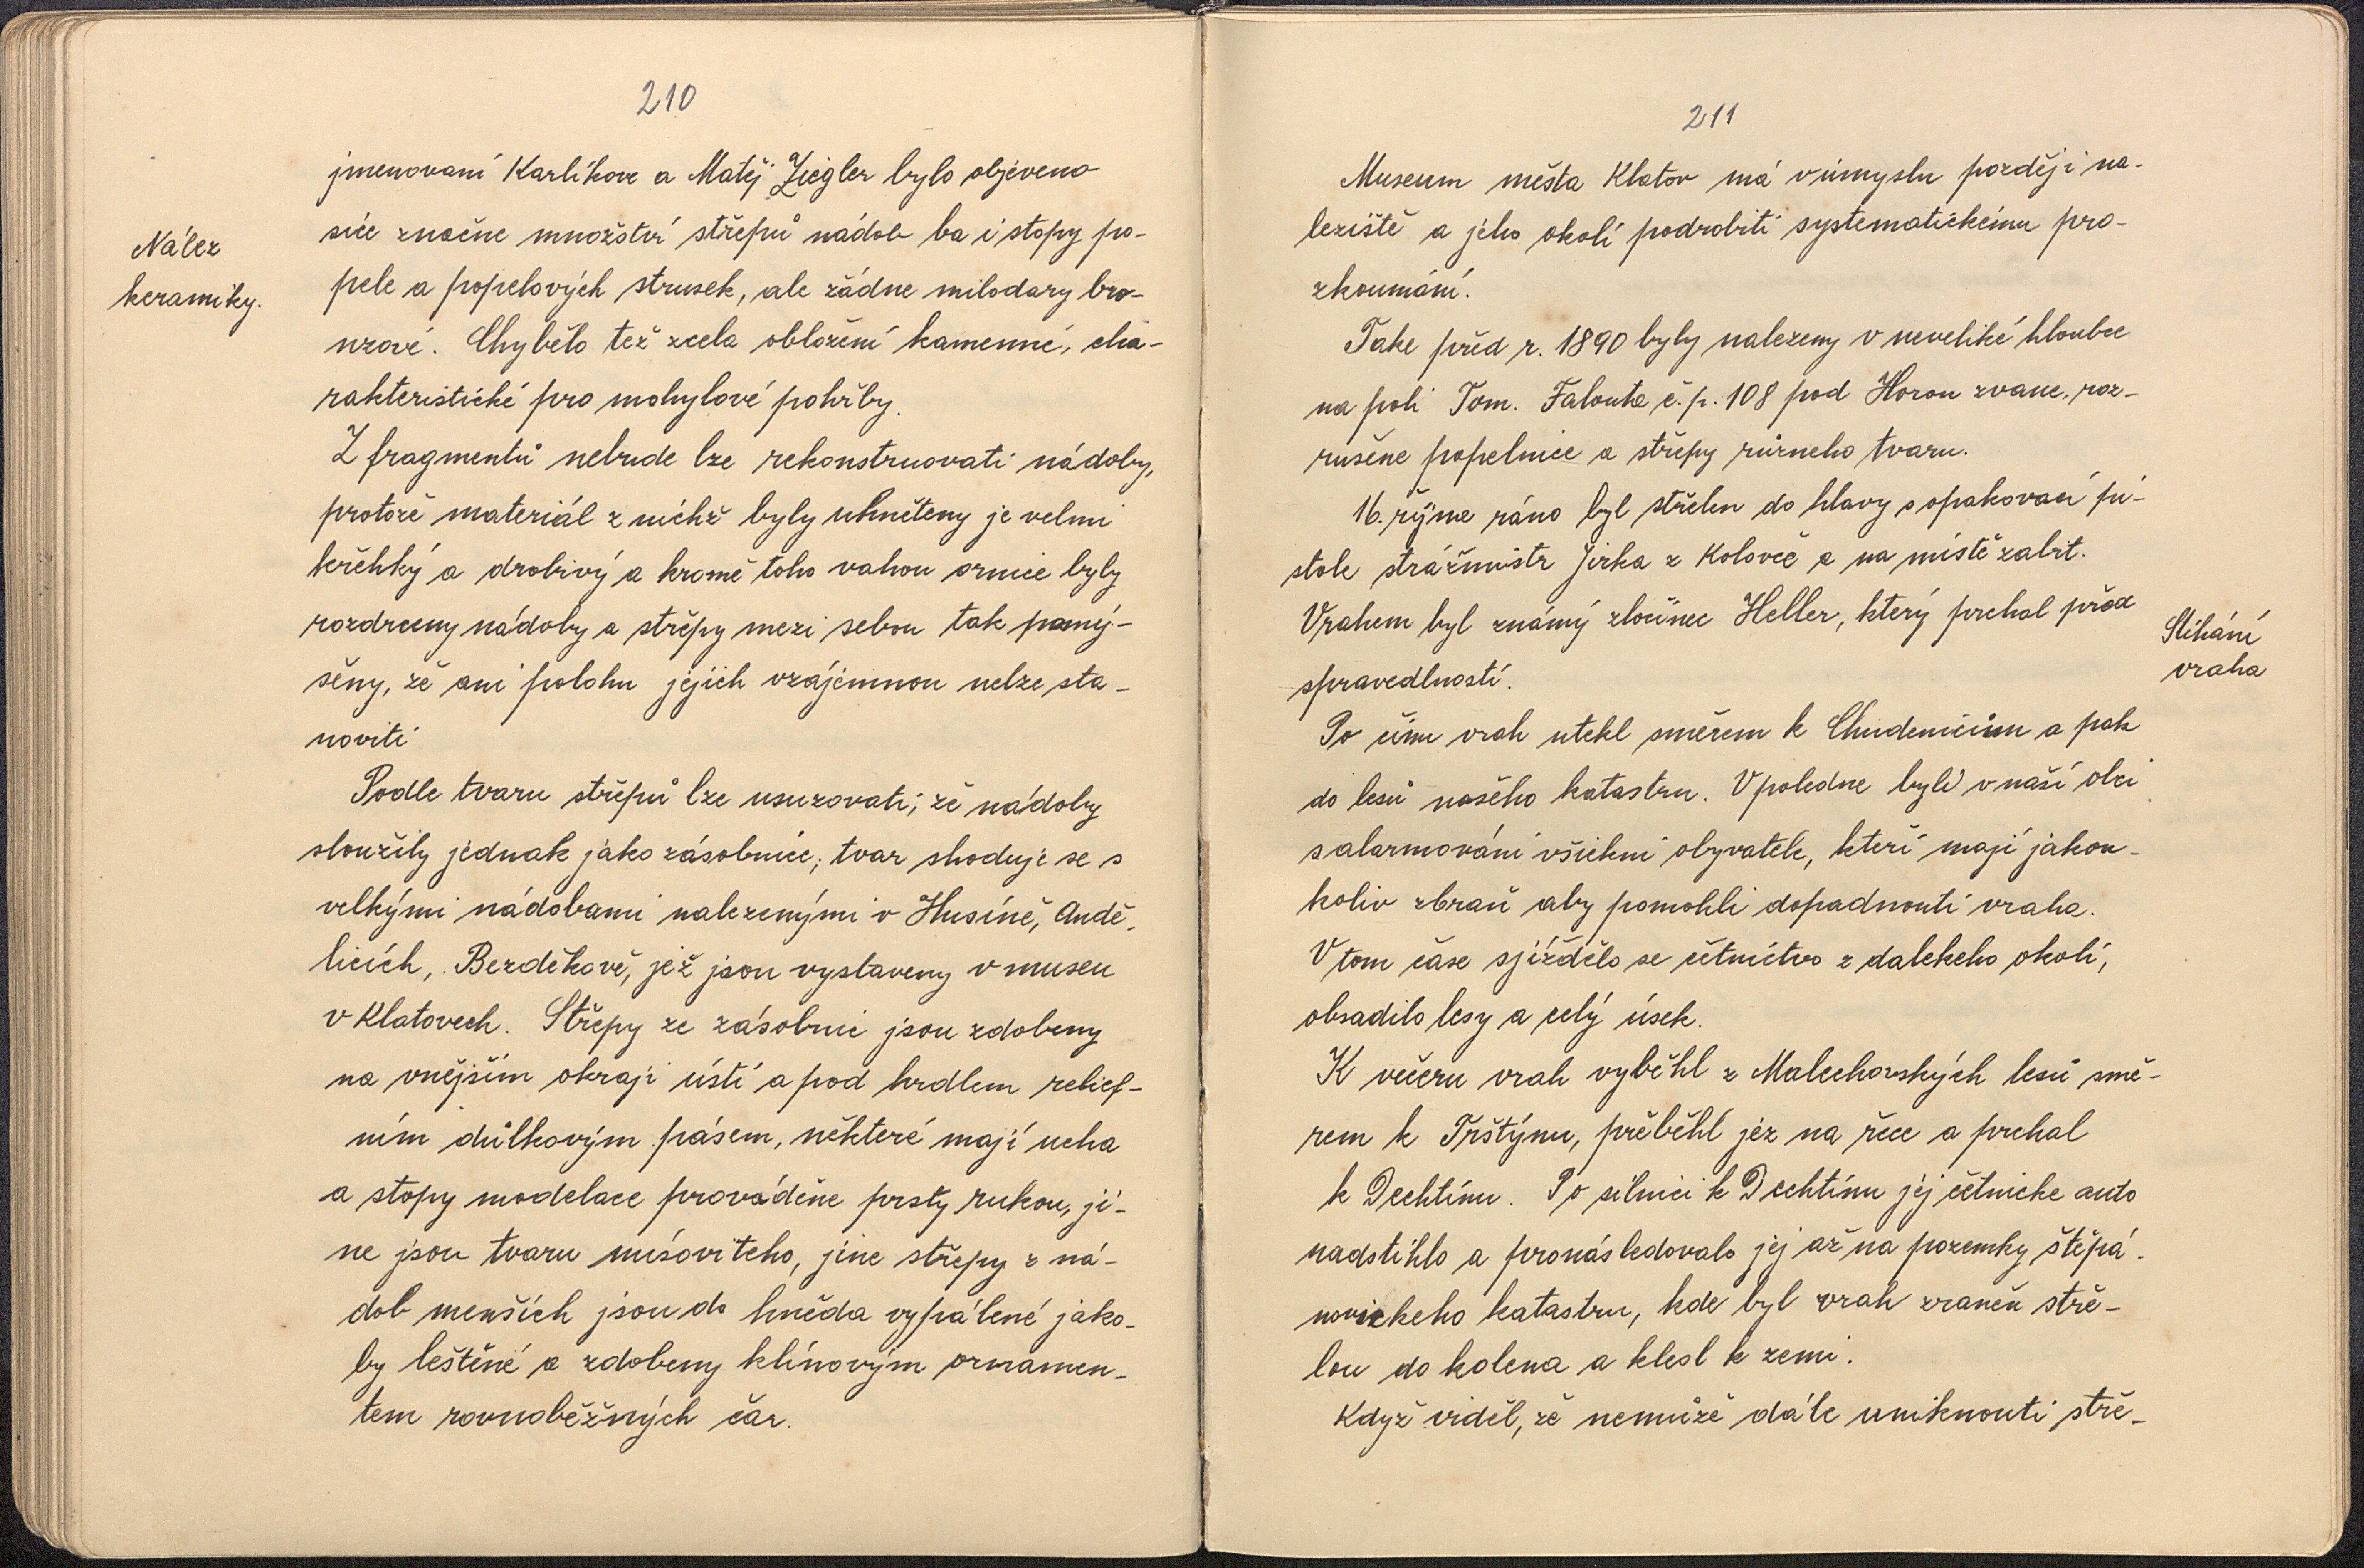 210
Nález
keramiky.
jmenovaní Karlíkove a Matěj Ziegler bylo objeveno
sice značne množství střepů nádob ba i stopy po-
pele a popelových strusek, ale žádne milodary bro-
nzové. Chybělo též zcela obložení kamenné, cha-
rakteristické pro mohylové pohřby.
Z fragmentů nebude lze rekonstruovati nádoby,
protože materiál z nichž byly uhněteny je velmi
křehký a drobivý a kromě toho vahou ornice byly
rozdrceny nádoby a střepy mezi sebou tak pomý-
šeny, že ani polohu jejich vzájemnou nelze sta-
noviti
Podle tvaru střepů lze usuzovati, že nádoby
sloužily jednak jako zásobnice, tvar shoduje se s
velkými nádobami nalezenými v Husíně, Andě-
licích, Bezděkově, jež jsou vystaveny v museu
v Klatovech. Střepy ze zásobnic jsou zdobeny
na vnějším okraji ústí a pod hrdlem relief-
ním důlkovým pásem, některé mají ucha
a stopy modelace prováděne prsty rukou, ji-
ne jsou tvaru mísoviteho, jine střepy z ná-
dob menších jsou do hněda vypálené jako-
by leštěné a zdobeny klínovým ornamen-
tem rovnoběžných čar.
211
Museum města Klatov má v úmyslu později na-
leziště a jeho okolí podrobiti systematickému pro-
zkoumání.
Take před r. 1890 byly nalezeny v neveliké hloubce
na poli Tom. Falouta č.p. 108 pod Horou zvane, roz-
rušene popelnice a střepy různeho tvaru.
16. řijna ráno byl střelen do hlavy s opakovací pi-
stole strážmistr Jirka z Kolovec a na místě zabit.
Vrahem byl známý zločinec Heller, který prchal před
spravedlností.
Stíhání
vraha
Po činu vrah utekl směrem k Chudenicům a pak
do lesů našeho katastru. V poledne byli v naší obci
salarmováni všichni obyvatele, kteří mají jakou-
koliv zbraň aby pomohli dopadnouti vraha.
V tom čase sjíždělo se četnictvo z dalekeho okolí,
obsadilo lesy a celý úsek.
K večeru vrah vyběhl z Malechovských lesů smě-
rem k Trštýnu, přeběhl jez na řece a prchal
k Dechtínu. Po silnici k Dechtínu jej četnicke auto
nadstihlo a pronásledovalo jej až na pozemky štěpá-
novickeho katastru, kde byl vrah zraněn stře-
lou do kolena a klesl k zemi.
Když viděl, že nemůže dále uniknouti stře-